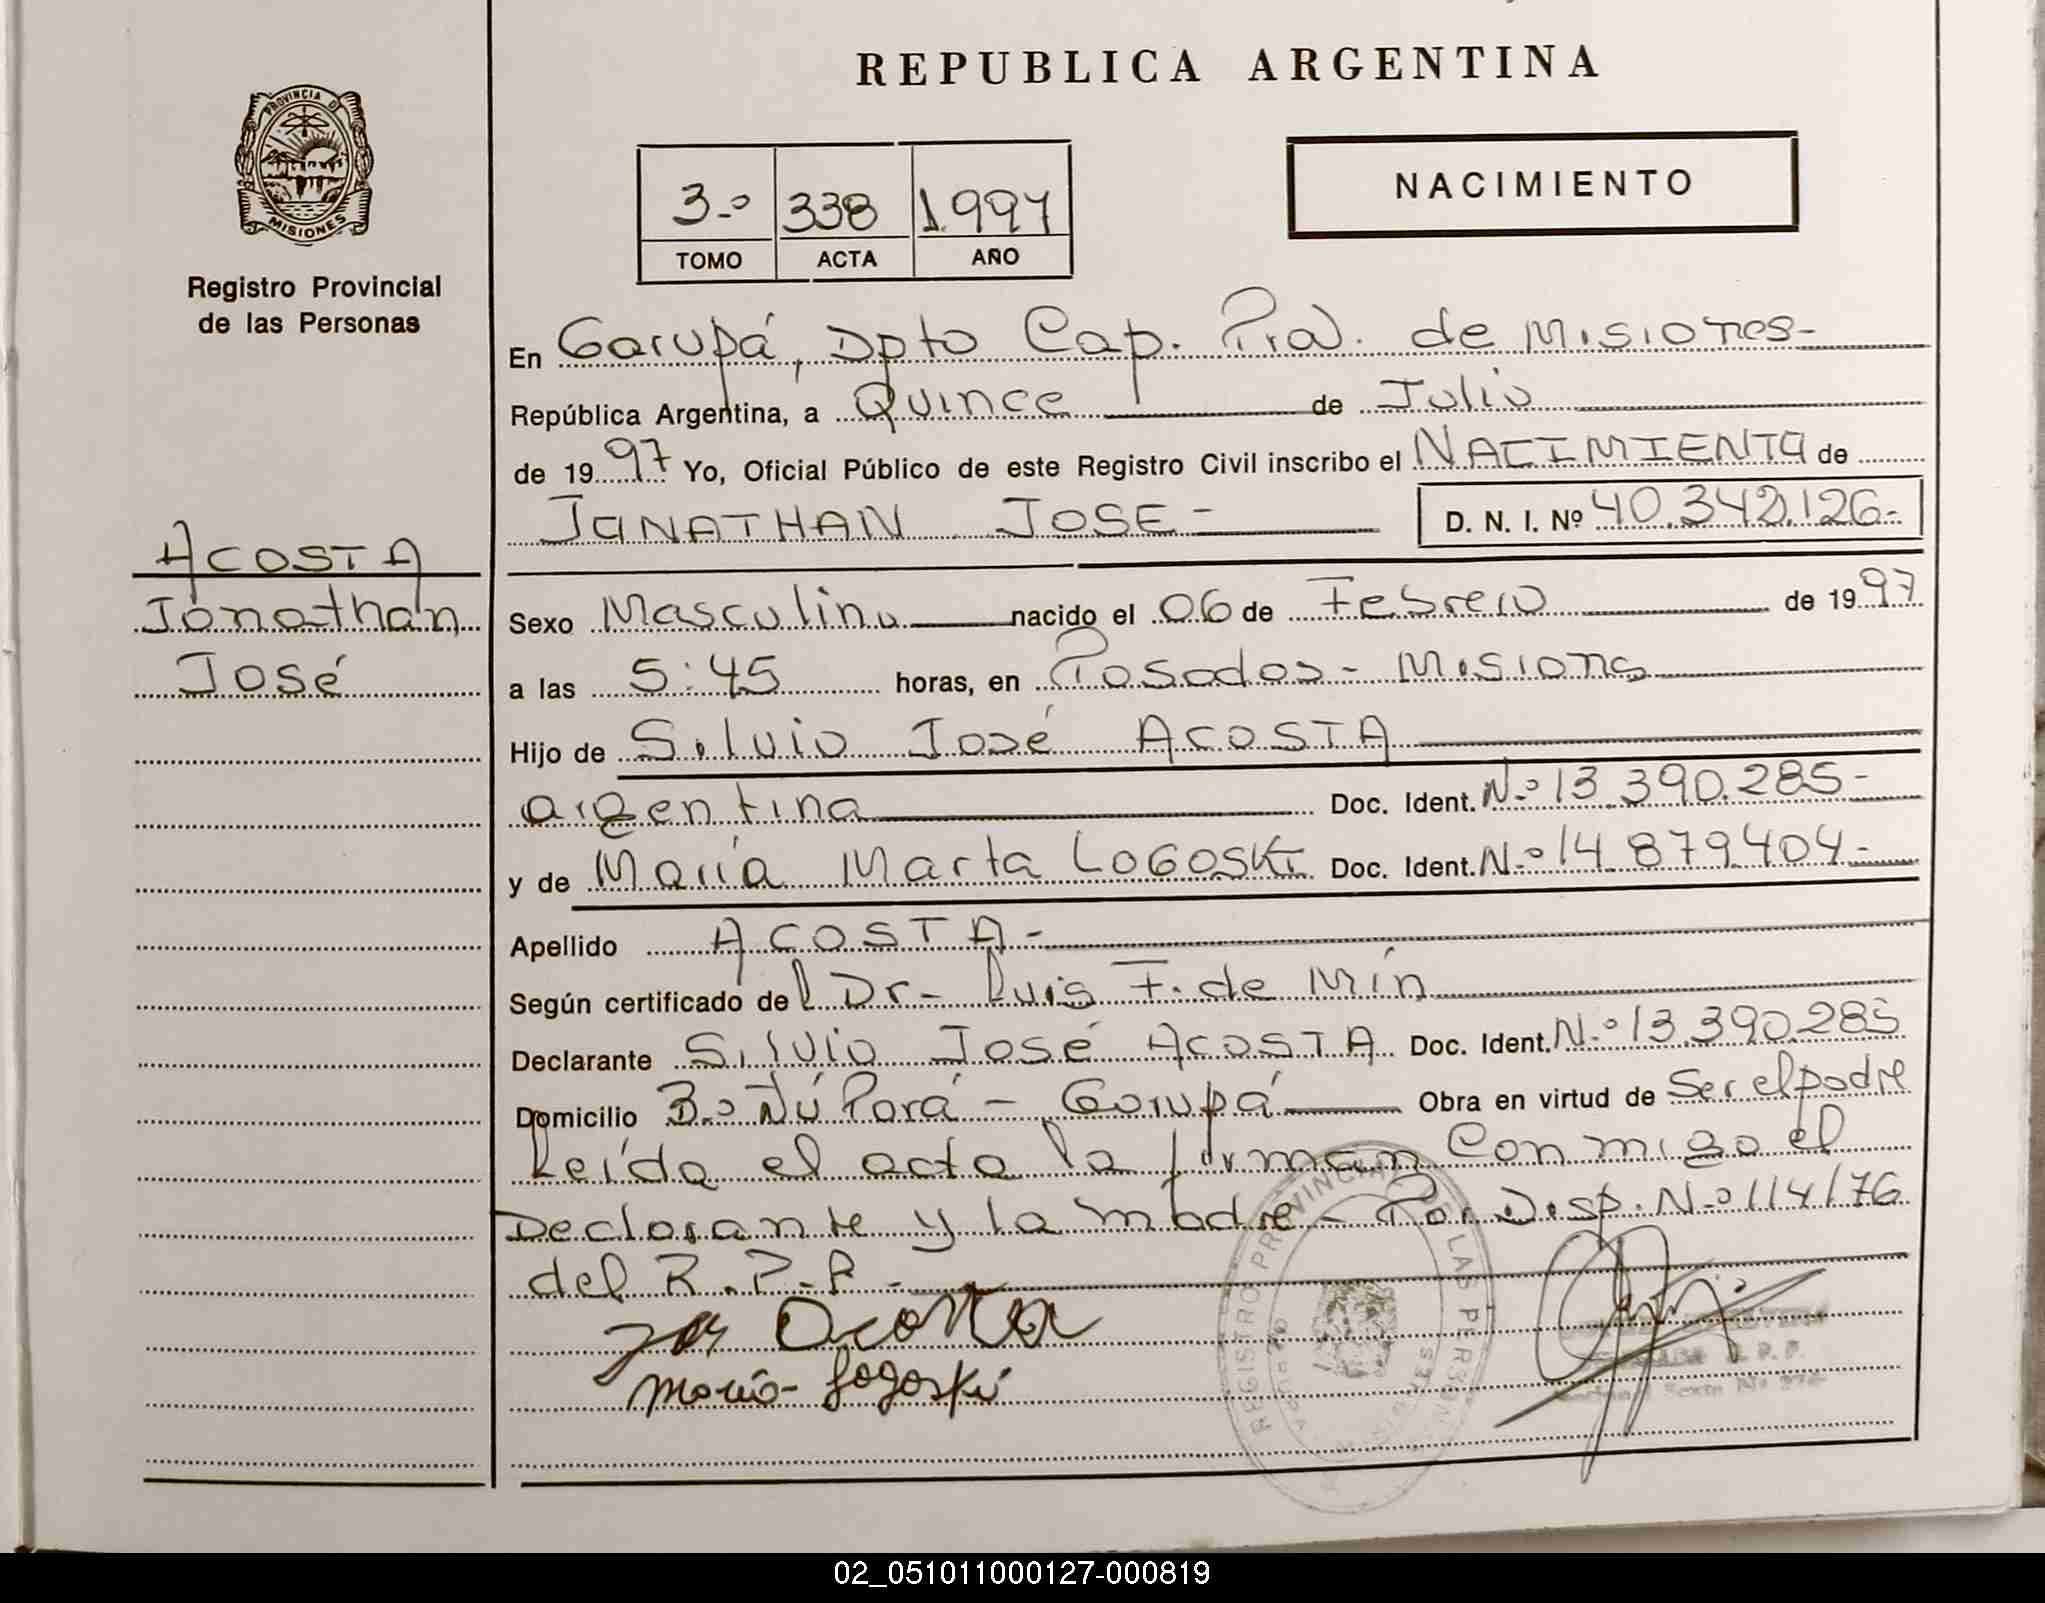 REPUBLICA ARGENTINA
PROVINCIA DE
MISIONES
Registro Provincial
de las Personas
3.º 338 1.997
TOMO ACTA AÑO
NACIMIENTO
En Garupá, Dpto Cap. Pcia. de Misiones-
República Argentina, a Quince de Julio
de 1997 Yo, Oficial Público de este Registro Civil inscribo el NACIMIENTO de
JONATHAN JOSE- D. N. I. Nº 40.342.126-
ACOSTA
Jonathan
José
Sexo Masculino nacido el 06 de Febrero de 1997
a las 5:45 horas, en Posadas - Misiones
Hijo de Silvio José ACOSTA
argentina Doc. Ident. N.º 13.390.285-
y de María Marta LOGOSKI Doc. Ident. N.º 14.879.404-
Apellido ACOSTA-
Según certificado del Dr- Luis F. de Mín
Declarante Silvio José ACOSTA Doc. Ident. N.º 13.390.285
Domicilio B.º Ñú Porá - Garupá Obra en virtud de Ser el padre
Leída el acta la firman Conmigo el
Declarante y la madre - Por Disp. N.º 114/76
del R.P.P.-
Acosta
María Logoski
REGISTRO PROVINCIAL DE LAS PERSONAS
02_051011000127-000819